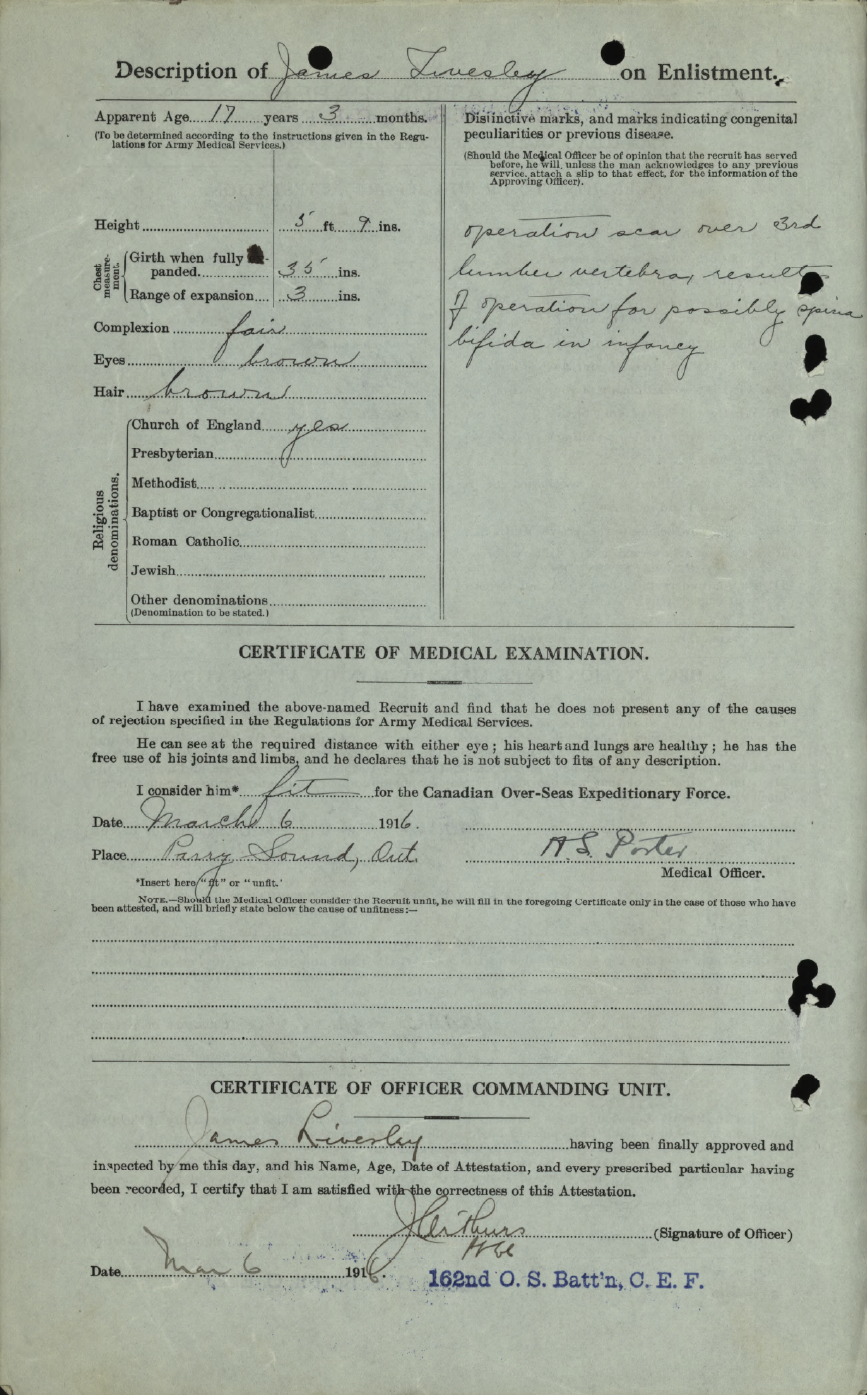 Description of James Livesley on Enlistment.
Apparent Age....17....years....3....months.
(To be determined according to the instructions given in the Regu-
lations for Army Medical Services.)
Height.... 5 ft. 9 ins.
Chest measure-ment.
Girth when fully -
panded.... 35 ins.
Range of expansion.... 3 ins.
Complexion.... fair
Eyes.... brown
Hair.... brown
Religious denominations.
Church of England.... yes
Presbyterian....
Methodist....
Baptist or Congregationalist....
Roman Catholic....
Jewish....
Other denominations....
(Denomination to be stated.)
Distinctive marks, and marks indicating congenital
peculiarities or previous disease.
(Should the Medical Officer be of opinion that the recruit has served
before, he will, unless the man acknowledges to any previous
service, attach a slip to that effect, for the information of the
Approving Officer).
operation scar over 3rd
lumber vertebra, result
of operation for possibly spina
bifida in infancy
CERTIFICATE OF MEDICAL EXAMINATION.
I have examined the above-named Recruit and find that he does not present any of the causes
of rejection specified in the Regulations for Army Medical Services.
He can see at the required distance with either eye; his heart and lungs are healthy; he has the
free use of his joints and limbs, and he declares that he is not subject to fits of any description.
I consider him*....fit....for the Canadian Over-Seas Expeditionary Force.
Date....March 6 1916.
Place....Parry Sound, Ont. H.S. Porter
Medical Officer.
*Insert here "fit" or "unfit."
NOTE.—Should the Medical Officer consider the Recruit unfit, he will fill in the foregoing Certificate only in the case of those who have
been attested, and will briefly state below the cause of unfitness:—
CERTIFICATE OF OFFICER COMMANDING UNIT.
James Livesley....having been finally approved and
inspected by me this day, and his Name, Age, Date of Attestation, and every prescribed particular having
been recorded, I certify that I am satisfied with the correctness of this Attestation.
J Arthurs....(Signature of Officer)
Date....Mar 6....1916.
162nd O. S. Batt'n, C. E. F.